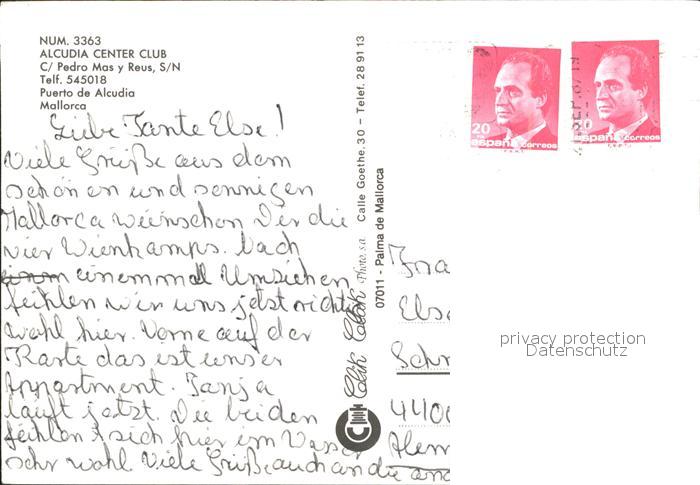 NUM. 3363
ALCUDIA CENTER CLUB
C/ Pedro Mas y Reus, S/N
Telf. 545018
Puerto de Alcudia
Mallorca
Liebe Tante Else!
Viele Grüße aus dem
schönen und sonnigen
Mallorca wünschen Dir die
vier Wienkamps. Nach
einemmal Umziehen
fühlen wir uns jetzt richtig
wohl hier. Vorne auf der
Karte das ist unser
Appartment. Tanja
läuft jetzt. Die beiden
fühlen sich hier im Wasser
sehr wohl Viele Grüße auch an die and
Clik Clak Photo, s.a. Calle Goethe, 30 - Telef. 28 91 13
07011 - Palma de Mallorca
20
españa correos
20
españa correos
Fra
Else
Schr
4400
Alem
privacy protection
Datenschutz